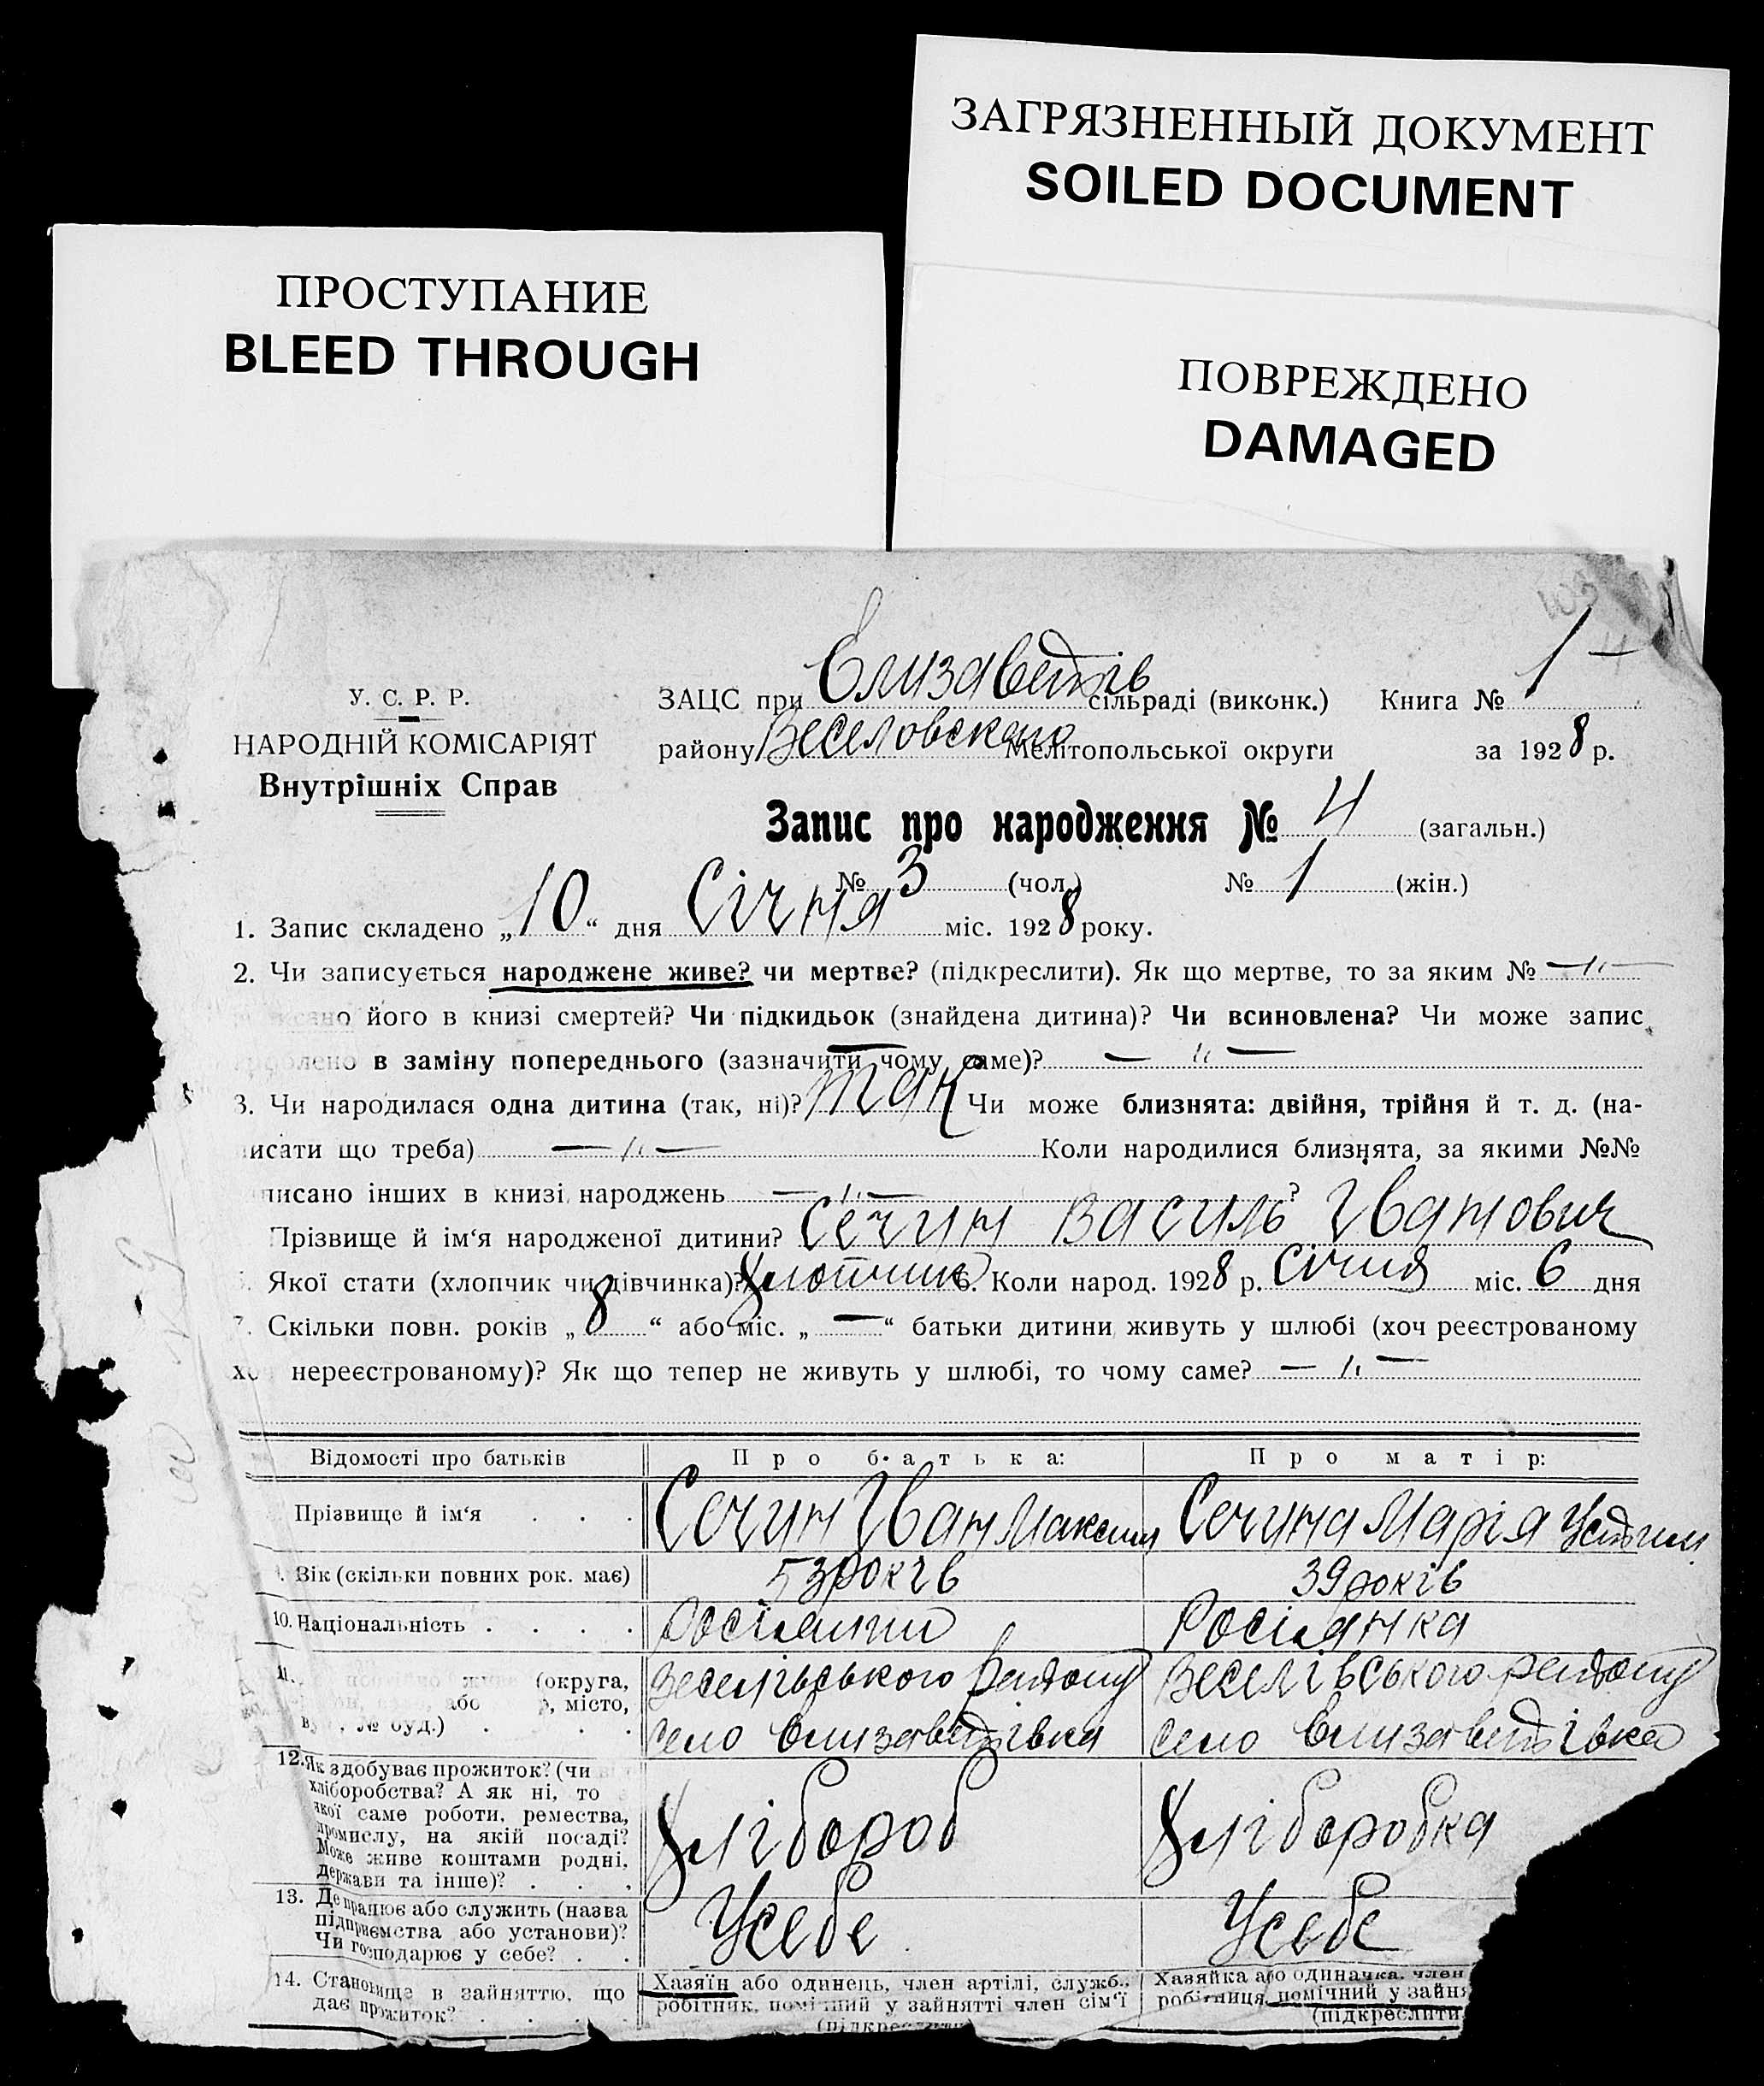 ЗАГРЯЗНЕННЫЙ ДОКУМЕНТ
SOILED DOCUMENT
ПРОСТУПАНИЕ
BLEED THROUGH
ПОВРЕЖДЕНО
DAMAGED
У. С. Р. Р.
НАРОДНІЙ КОМІСАРІЯТ
Внутрішніх Справ
ЗАЦС при Єлизаветів сільраді (виконк.) Книга № 1
району Веселовского Мелітопольської округи за 1928 р.
Запис про народження № 4 (загальн.)
№ 3 (чол.) № 1 (жін.)
1. Запис складено „10“ дня Січня міс. 1928 року.
2. Чи записується народжене живе? чи мертве? (підкреслити). Як що мертве, то за яким № —"—
його в книзі смертей? Чи підкидьок (знайдена дитина)? Чи всиновлена? Чи може запис
в заміну попереднього (зазначити чому саме)? — " —
3. Чи народилася одна дитина (так, ні)? так Чи може близнята: двійня, трійня й т. д. (на-
писати що треба) — " — Коли народилися близнята, за якими №№
писано інших в книзі народжень — " — ?
Прізвище й ім‘я народженої дитини? Сечин Василь Іванович
Якої стати (хлопчик чи дівчинка)? Хлопчик 6. Коли народ. 1928 р. Січня міс. 6 дня
7. Скільки повн. років „8“ або міс. „—“ батьки дитини живуть у шлюбі (хоч реєстрованому
хоч нереєстрованому)? Як що тепер не живуть у шлюбі, то чому саме? — " —
Відомості про батьків Про батька: Про матір:
Прізвище й ім‘я . . . Сечин Іван Максим Сечина Марія Устим
Вік (скільки повних рок. має) 53 років 39 років
10. Національність . . . . Росіянин Росіянка
11. (округа, Веселівського району Веселівського району
або р, місто,
№ буд.) . . . село Єлизаветівка село Єлизаветівка
12. Як здобуває прожиток? (чи
хліборобства? А як ні, то
якої саме роботи, ремества,
промислу, на якій посаді?
Може живе коштами родні,
держави та інше)? . . . Хлібороб Хліборобка
13. Де працює або служить (назва
підприємства або установи)?
Чи господарює у себе? . . Усебе Усебе
14. Становище в зайняттю, що
дає прожиток? . . . .
Хазяїн або одинець, член артілі, служб., Хазяйка або одиначка, член
робітник, помічний у зайнятті член сім‘ї робітниця, помічний у зайня
(підкреслити) (підкреслити